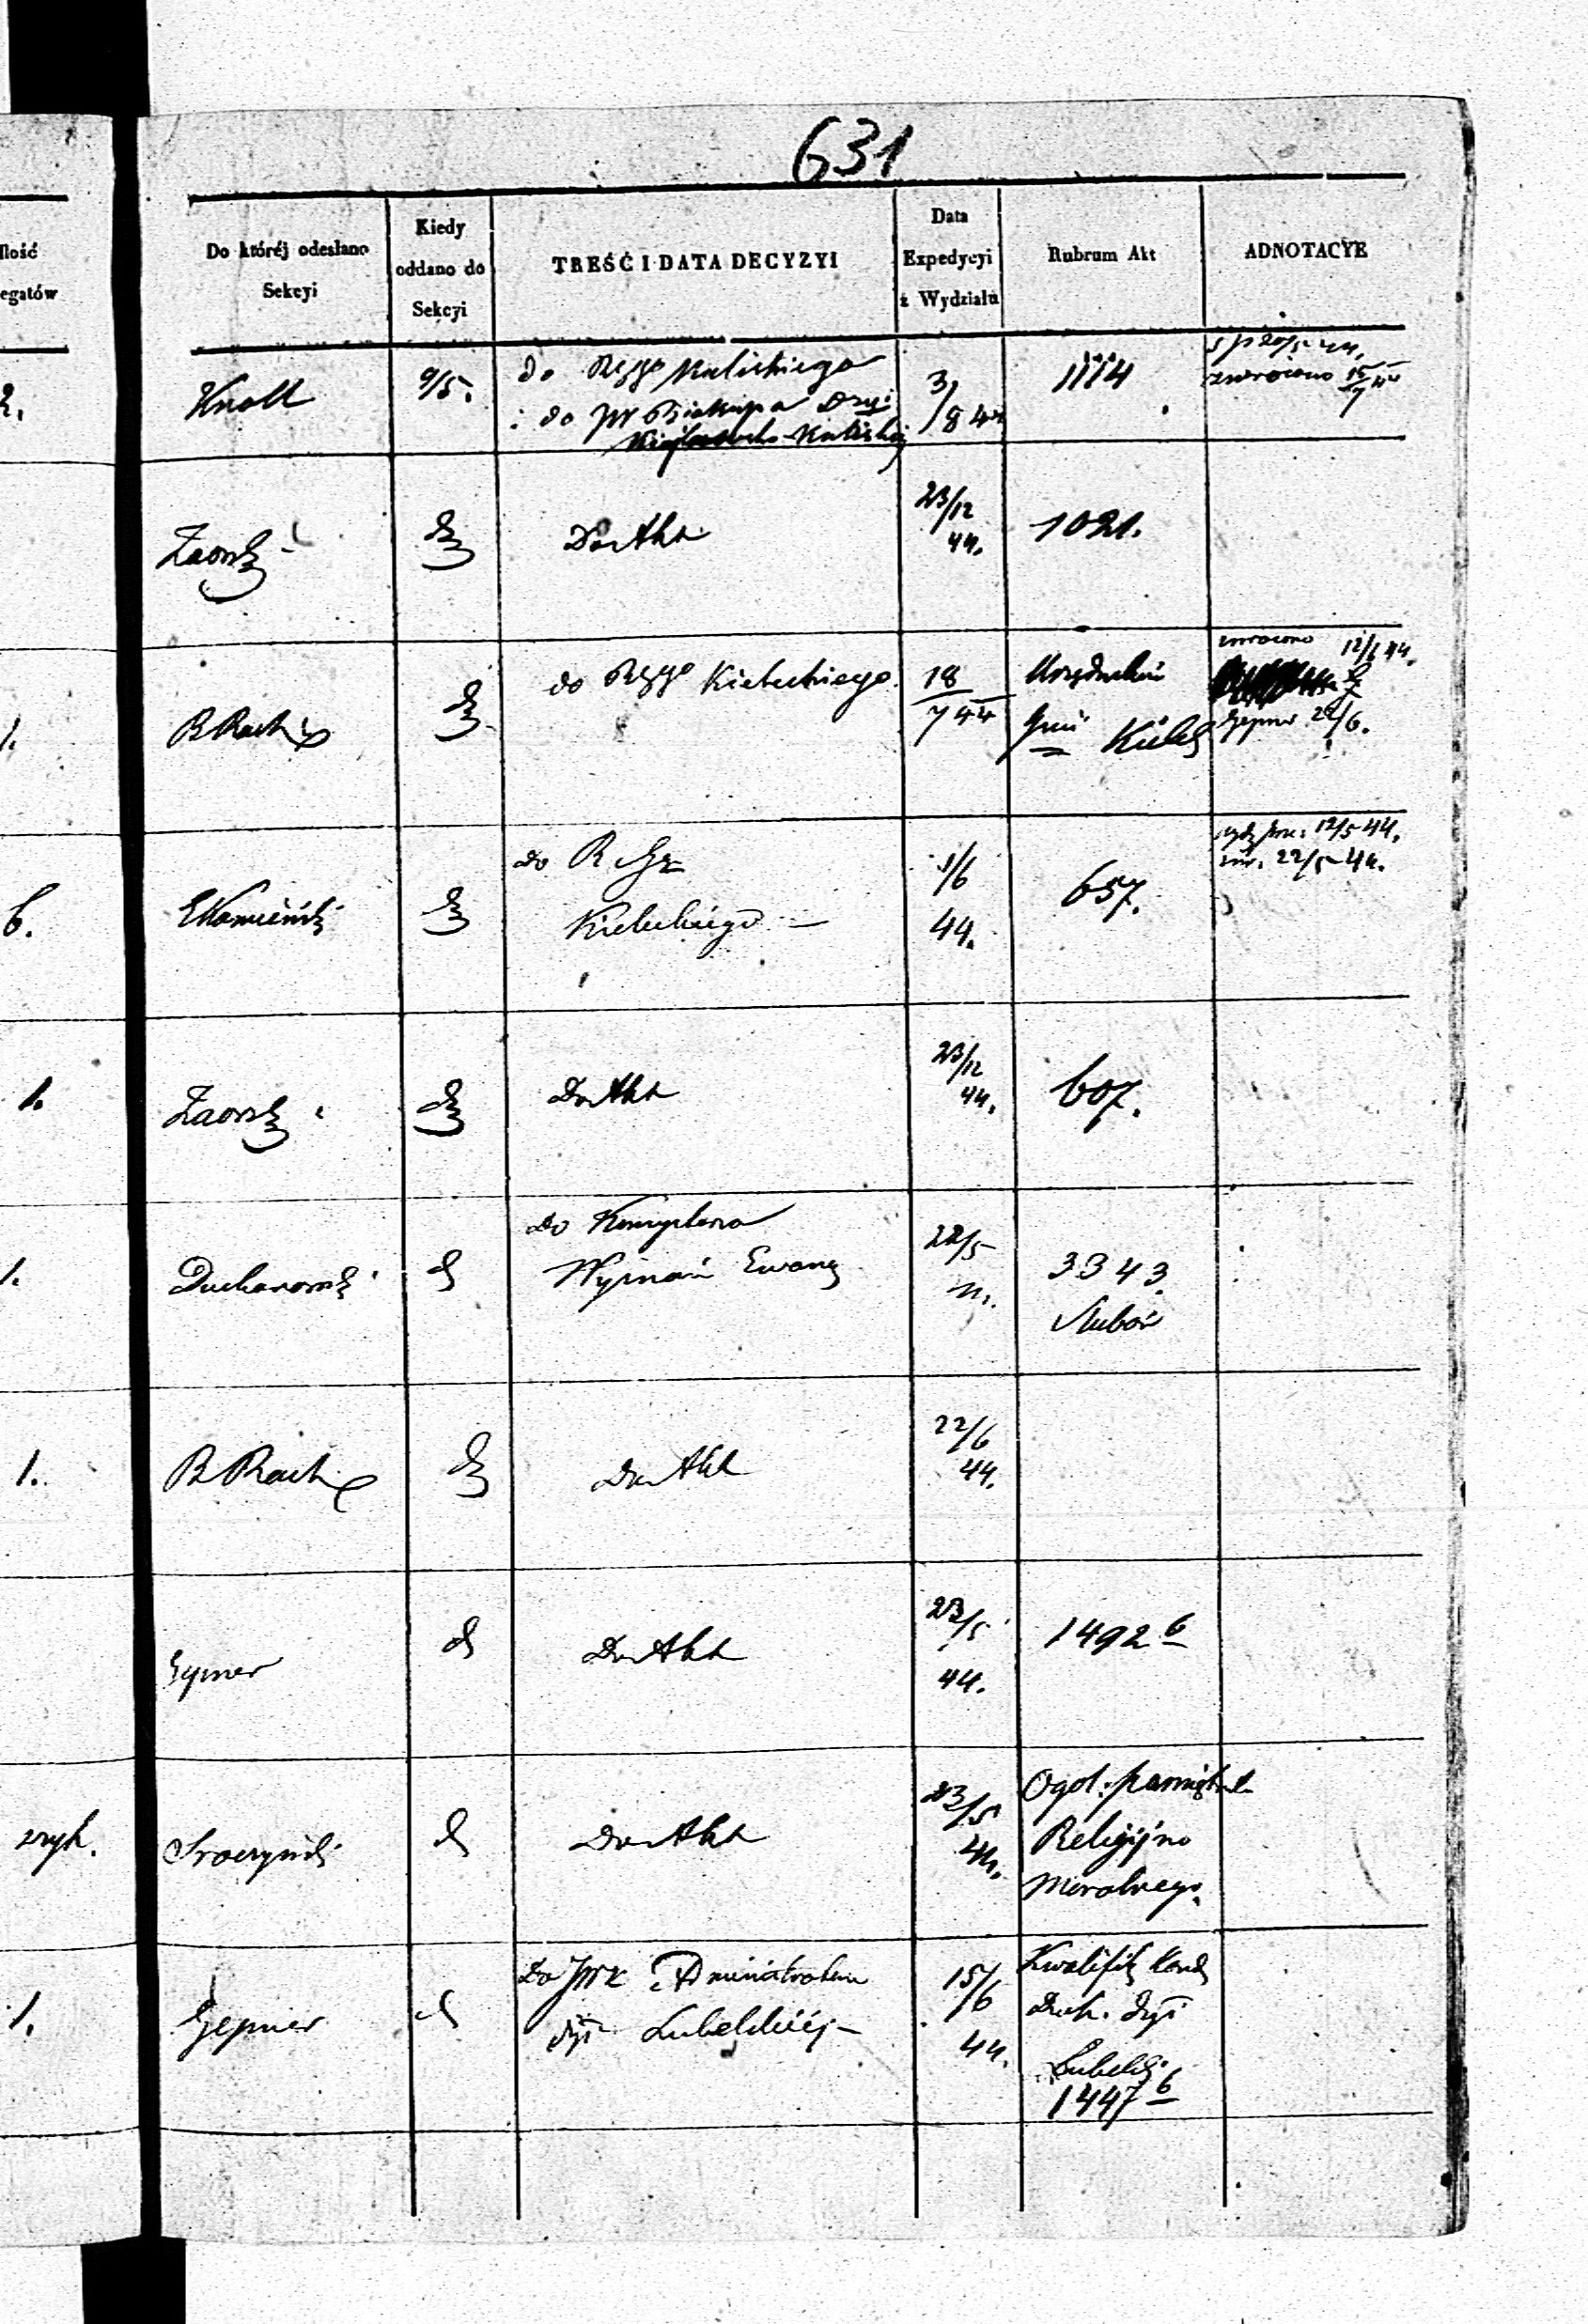 631
Ilość
egatów
Do któréj odesłano
Sekcyi
Kiedy
oddano do
Sekcyi
TREŚĆ I DATA DECYZYI
Data
Expedycyi
z Wydziału
Rubrum Akt
ADNOTACYE
2.
Knoll
9/5.
do Rządu Kaliskiego
do JW Biskupa Dyi
Kaliskiej
3/8 44
1114
zwrócono 15/7 44
Zaorski
Do Akt
23/12
44.
1021.
1.
B Racki
do Rządu Kieleckiego
18/7 44
Urzędników
Gmin
Kielec
zwrócono 12/6 44.
Gepner 22/6.
6.
E Kamieński
do R
Kieleckiego
1/6
44.
657.
12/5 44.
zwr. 22/5 44.
1.
Zaorski
Do Akt
23/12
44.
607.
1.
Duchanowski
do Konsystorza
Wyznań Ewang
22/5
3343.
Słubów
1.
B Racki
Do Akt
22/6
44.
Gepner
Do Akt
23/5
44.
1492 b
Sroczyński
Do Akt
23/5
44.
Ogól.
Religijno
Moralnego.
1.
Gepner
Do JWX Administratora
Dyi Lubelskiéj
15/6
44.
Kwalifik Kand
Duch. Dyi
Lubelskj
1447 b